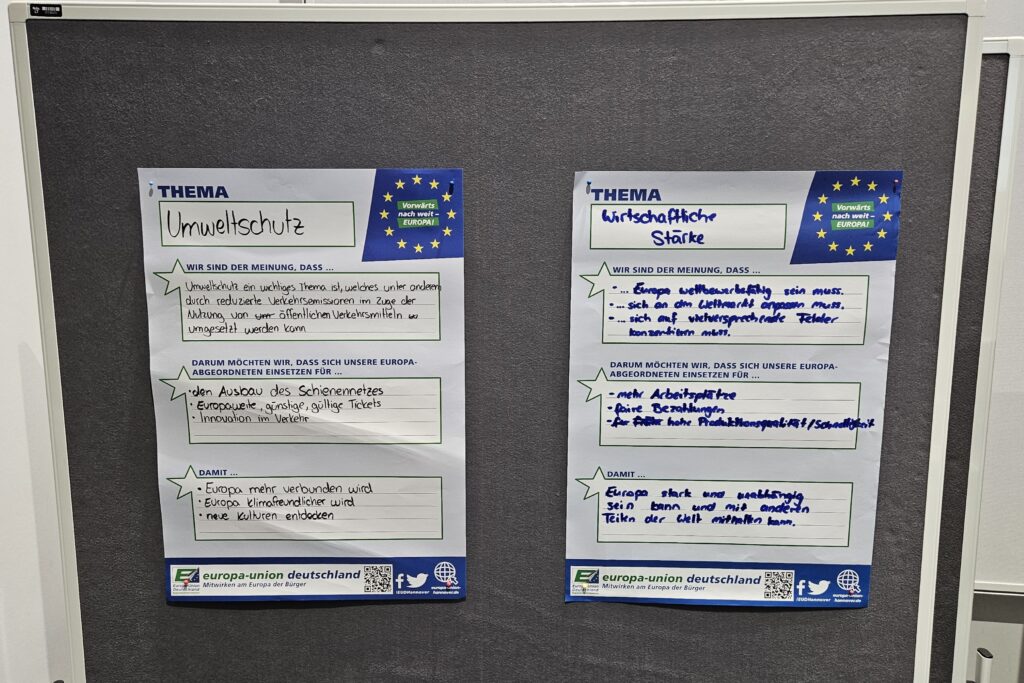 THEMA
Umweltschutz
Vorwärts
nach weit –
EUROPA!
WIR SIND DER MEINUNG, DASS ...
Umweltschutz ein wichtiges Thema ist, welches unter anderem
durch reduzierte Verkehrsemissionen im Zuge der
Nutzung von öffentlichen Verkehrsmitteln
umgesetzt werden kann
DARUM MÖCHTEN WIR, DASS SICH UNSERE EUROPA-
ABGEORDNETEN EINSETZEN FÜR ...
• den Ausbau des Schienennetzes
• Europaweite, günstige, gültige Tickets
• Innovation im Verkehr
DAMIT ...
• Europa mehr verbunden wird
• Europa klimafreundlicher wird
• neue Kulturen entdecken
europa-union deutschland
Mitwirken am Europa der Bürger
/EUDHannover
europa-union-
hannover.de
THEMA
Wirtschaftliche
Stärke
Vorwärts
nach weit –
EUROPA!
WIR SIND DER MEINUNG, DASS ...
- ... Europa wettbewerbsfähig sein muss.
- ... sich an den Weltmarkt anpassen muss.
- ... sich auf vielversprechende Felder
konzentrieren muss.
DARUM MÖCHTEN WIR, DASS SICH UNSERE EUROPA-
ABGEORDNETEN EINSETZEN FÜR ...
- mehr Arbeitsplätze
- faire Bezahlungen
- hohe Produktionsqualität/Schnelligkeit
DAMIT ...
Europa stark und unabhängig
sein kann und mit anderen
Teilen der Welt mithalten kann.
europa-union deutschland
Mitwirken am Europa der Bürger
/EUDHannover
europa-union-
hannover.de